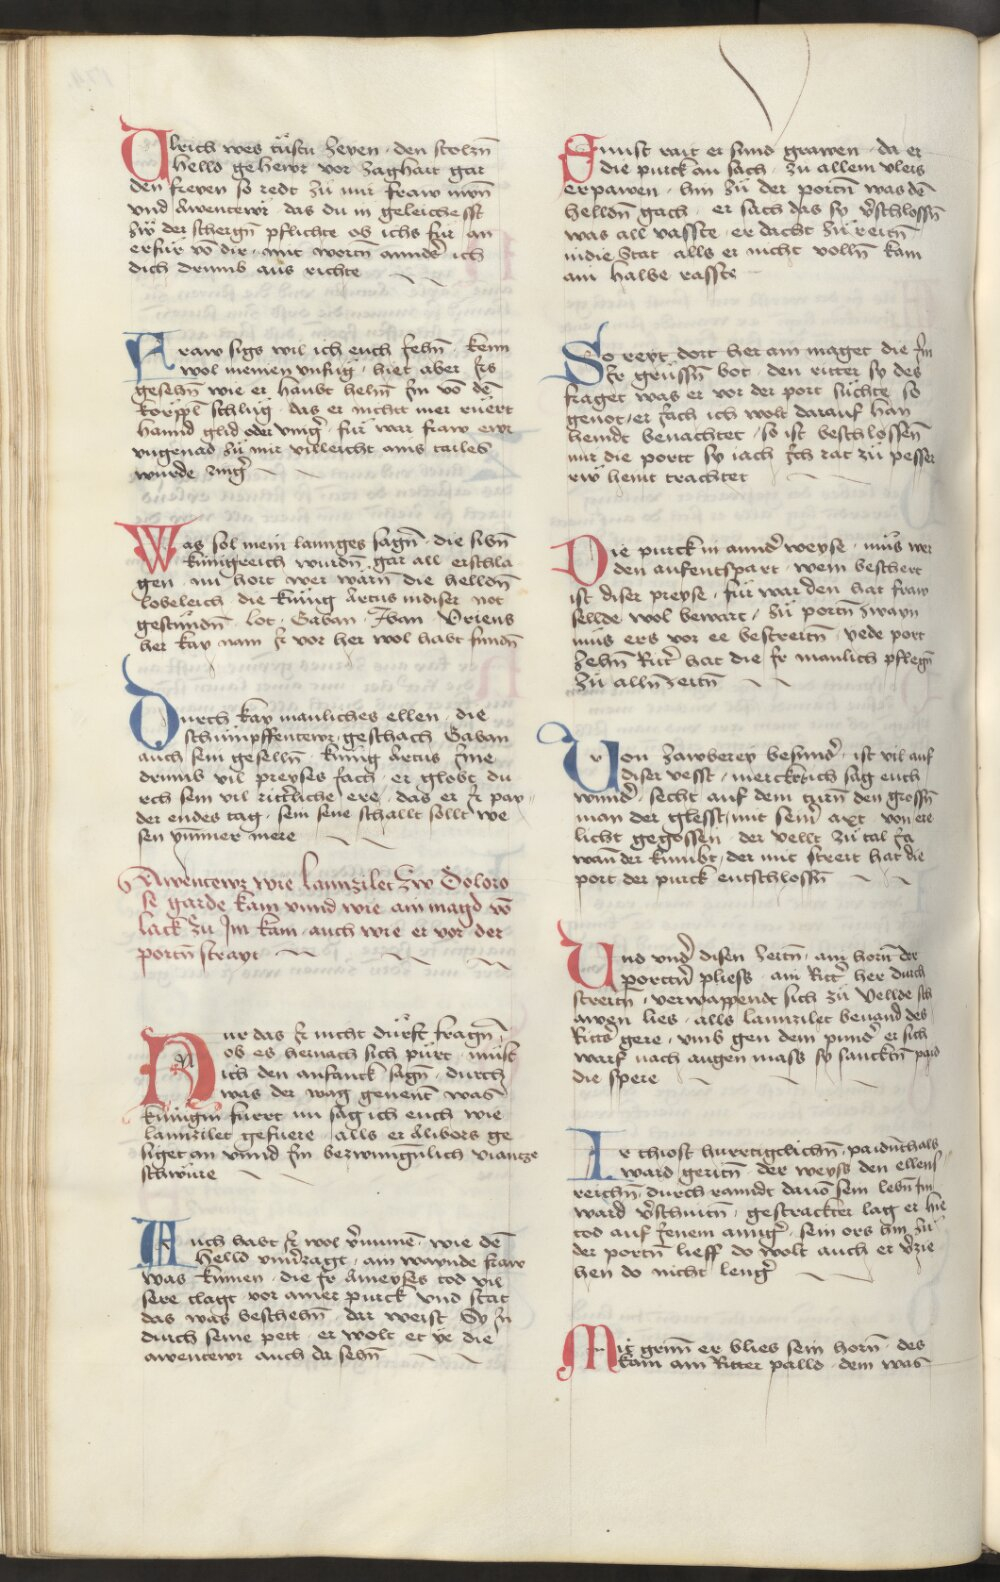 Ulrich wes tuͤstu zeyen · den stolzn̄
helld gehewr vor zaghait gar
den freyen so redt zu mir fraw myn̄
vnd Awentewr · das du in geleichesst
zw der schergn̄ pflichte ob ichs fur an
erfur vō dir · mit wortn̄ annders ich
dich drumb aus richte
Fraw sigs wil ich euch Jehn̄ · kenn
wol meinen vnfug · hiet aber Irs
gesehn̄ wie er haubt helm̄ Im vō dē
korppl̄ schlug · das er nicht mer ruert
hannd glid oder vinger · fur war fraw ewr
vngenad zu mir villeicht ains tailes
wurde ringer
Was sol mein lannges sagn̄ · die sibn̄
kunigreich wurdn̄ gar all erschla
gen · nu hort wer warn̄ die helldn̄
lobeleich · die kunig Artus indiser not
gestundn̄ · Lot · Gaban · Iban · Vriens
her kay nam Ir vor her wol habt fundn̄
Durch kay manliches ellen · die
schimpffentewr · geschach Gaban
auch sein geselln̄ · kunig Artus Ime
drumb vil preyses Jach · er globt du
rch sein vil ritterliche ere · das er Ir pay
der endes tag · sein sene schallt sollt we
sen ymmer mere
Awentewr wie Lanntzilet zw Doloro
se garde kam vnnd wie ain magd vō
lack zu Im kam · auch wie er vor der
portn̄ strayt
Nur das Ir nicht durfft fragn̄ ·
ob es hernach sich purt · muͤst
ich den anfanck sagn̄ · durch
was der wag genent was
kunigin̄ furrt nu sag ich euch wie
lanntzilet gefuere alls er Alibors ge
siget an vnnd Im bezwungnlich viantze
schwure
Auch habt Ir wol vernumē · wie dē
helld vnuerzagt · ain waynde fraw
was kumen · die Ir Ameyses tod vil
sere clagt · vor ainer purck vnd stat
das was beschehn̄ · dar weist Sy In
durch seine pett · er wolt et ye die
awentewr auch da sehn̄
Sunst rait er sund grawen · da er
die purck an sach · zu allem vleis
erpawen · hin zu der portn̄ was dē
helldn̄ gach · er sach das sy verschlossn̄
was all vasste · er dacht zu reitn̄
indie Stat · alls er nicht volln̄ kam
ain halbe rasste
So reyt dort her ain maget die Im
Ir grussn̄ bot · den ritter sy des
fraget was er vor der port suchte so
genot · er Jach ich wolt darauf han
heindt benachtet · so ist beschlossen̄
mir die portt sy iach Ich rat zu pesser
rw heint trachtet
Die purck in annder weyse · mus wer
den aufentspart · wem beschert
ist diser preyse · fur war den hat fraw
sellde wol bewart · zu portn̄ zwayn
mus ers vor ee bestreitn̄ · yede port
zehn̄ Ritter hat die Ir manlich pflegn̄
zu alln̄ zeitn̄
Von zawberey besunder · ist vil auf
diser vesst · mercket ich sag euch
wunder · secht auf dem turn̄ den grossn̄
man der glesst · mit seiner axt von ere
licht gegossen · der vellt zu tal Ja
wan der kumbt · der mit streit hat die
port der purck entschlossn̄
Und vnder disen zeitn̄ · ain horn̄ der
porttner pliess · ain Ritter her durch
streitn̄ · verwappendt sich zu vellde sch
awen lies · alls lanntzilet benand des
Ritters gere · vmb gen dem pund er sich
warf nach augen mass sy sanncktn̄ paid
die spere
Ir thiost hurrtigclichn̄ · paidnthals
ward geritn̄ · der weyss den ellens
reichn̄ · durch ramdt dauō sein lebn̄ Im
ward verschnitn̄ · gestrackter lag er hie
tod auf Jenem annger · sein ors hin zu
der portn̄ lieff do wolt auch er verzie
hen do nicht lenger
Mit grim̄ er blies sein horn̄ · des
kam ain Ritter palld · dem was